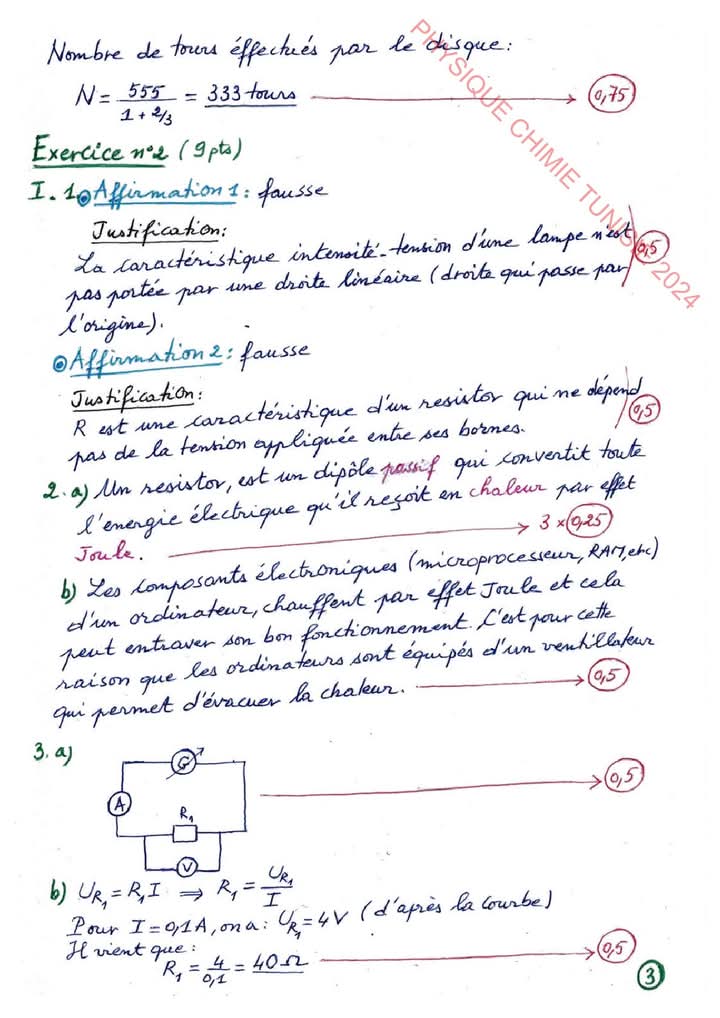 Nombre de tours éffectués par le disque:
N = 555 / (1 + 2/3) = 333 tours → 0,75
Exercice n°2 (9pts)
I. 1. Affirmation 1: fausse
Justification:
La caractéristique intensité-tension d'une lampe n'est 0,5
pas portée par une droite linéaire (droite qui passe par
l'origine).
Affirmation 2: fausse
Justification:
R est une caractéristique d'un resistor qui ne dépend 0,5
pas de la tension appliquée entre ses bornes.
2. a) Un resistor, est un dipôle passif qui convertit toute
l'energie électrique qu'il reçoit en chaleur par effet
Joule. → 3 × 0,25
b) Les composants électroniques (microprocesseur, RAM, etc)
d'un ordinateur, chauffent par effet Joule et cela
peut entraver son bon fonctionnement. C'est pour cette
raison que les ordinateurs sont équipés d'un ventillateur
qui permet d'évacuer la chaleur. → 0,5
3. a)
G
→ 0,5
A
R₁
V
b) U_R₁ = R₁ I ⇒ R₁ = U_R₁ / I
Pour I = 0,1A, on a: U_R₁ = 4V (d'après la courbe)
Il vient que:
R₁ = 4 / 0,1 = 40 Ω → 0,5
3
PHYSIQUE CHIMIE TUNIS 2024